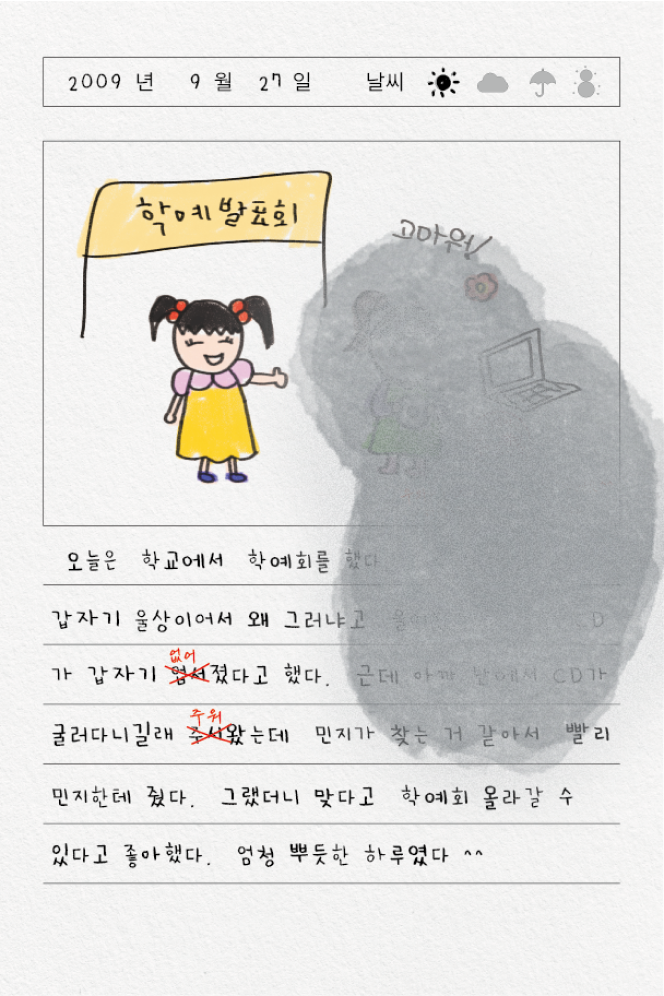 2009 년 9 월 27 일 날씨
학예발표회
고마워!
오늘은 학교에서 학예회를 했다
갑자기 울상이어서 왜 그러냐고 D
없어
가 갑자기 엄서졌다고 했다. 근데 아까 CD가
주워
굴러다니길래 주서왔는데 민지가 찾는 거 같아서 빨리
민지한테 줬다. 그랬더니 맞다고 학예회 올라갈 수
있다고 좋아했다. 엄청 뿌듯한 하루였다 ^^